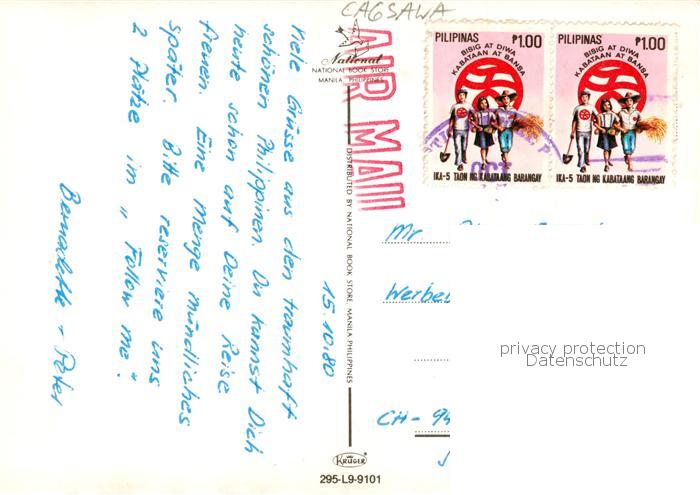 CAGSAWA
National
NATIONAL BOOK STORE
MANILA, PHILIPPINES
AIR MAIL
PILIPINAS ₱1.00
BISIG AT DIWA
KABATAAN AT BANSA
IKA-5 TAON NG KABATAANG BARANGAY
PILIPINAS ₱1.00
BISIG AT DIWA
KABATAAN AT BANSA
IKA-5 TAON NG KABATAANG BARANGAY
OCT
15.10.80
Viele Grüsse aus den traumhaft
schönen Philippinen. Du kannst Dich
heute schon auf Deine Reise
freuen. Eine Menge mündliches
später. Bitte reserviere uns
2 Plätze im „Follow me".
Bernadette + Peter
DISTRIBUTED BY NATIONAL BOOK STORE MANILA PHILIPPINES
Mr.
CH-94
privacy protection
Datenschutz
KRÜGER
295-L9-9101